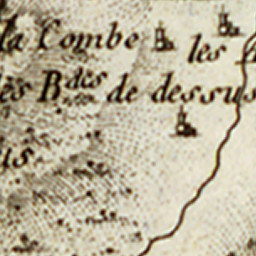 la Combe
les
es Rdes de dessus
us